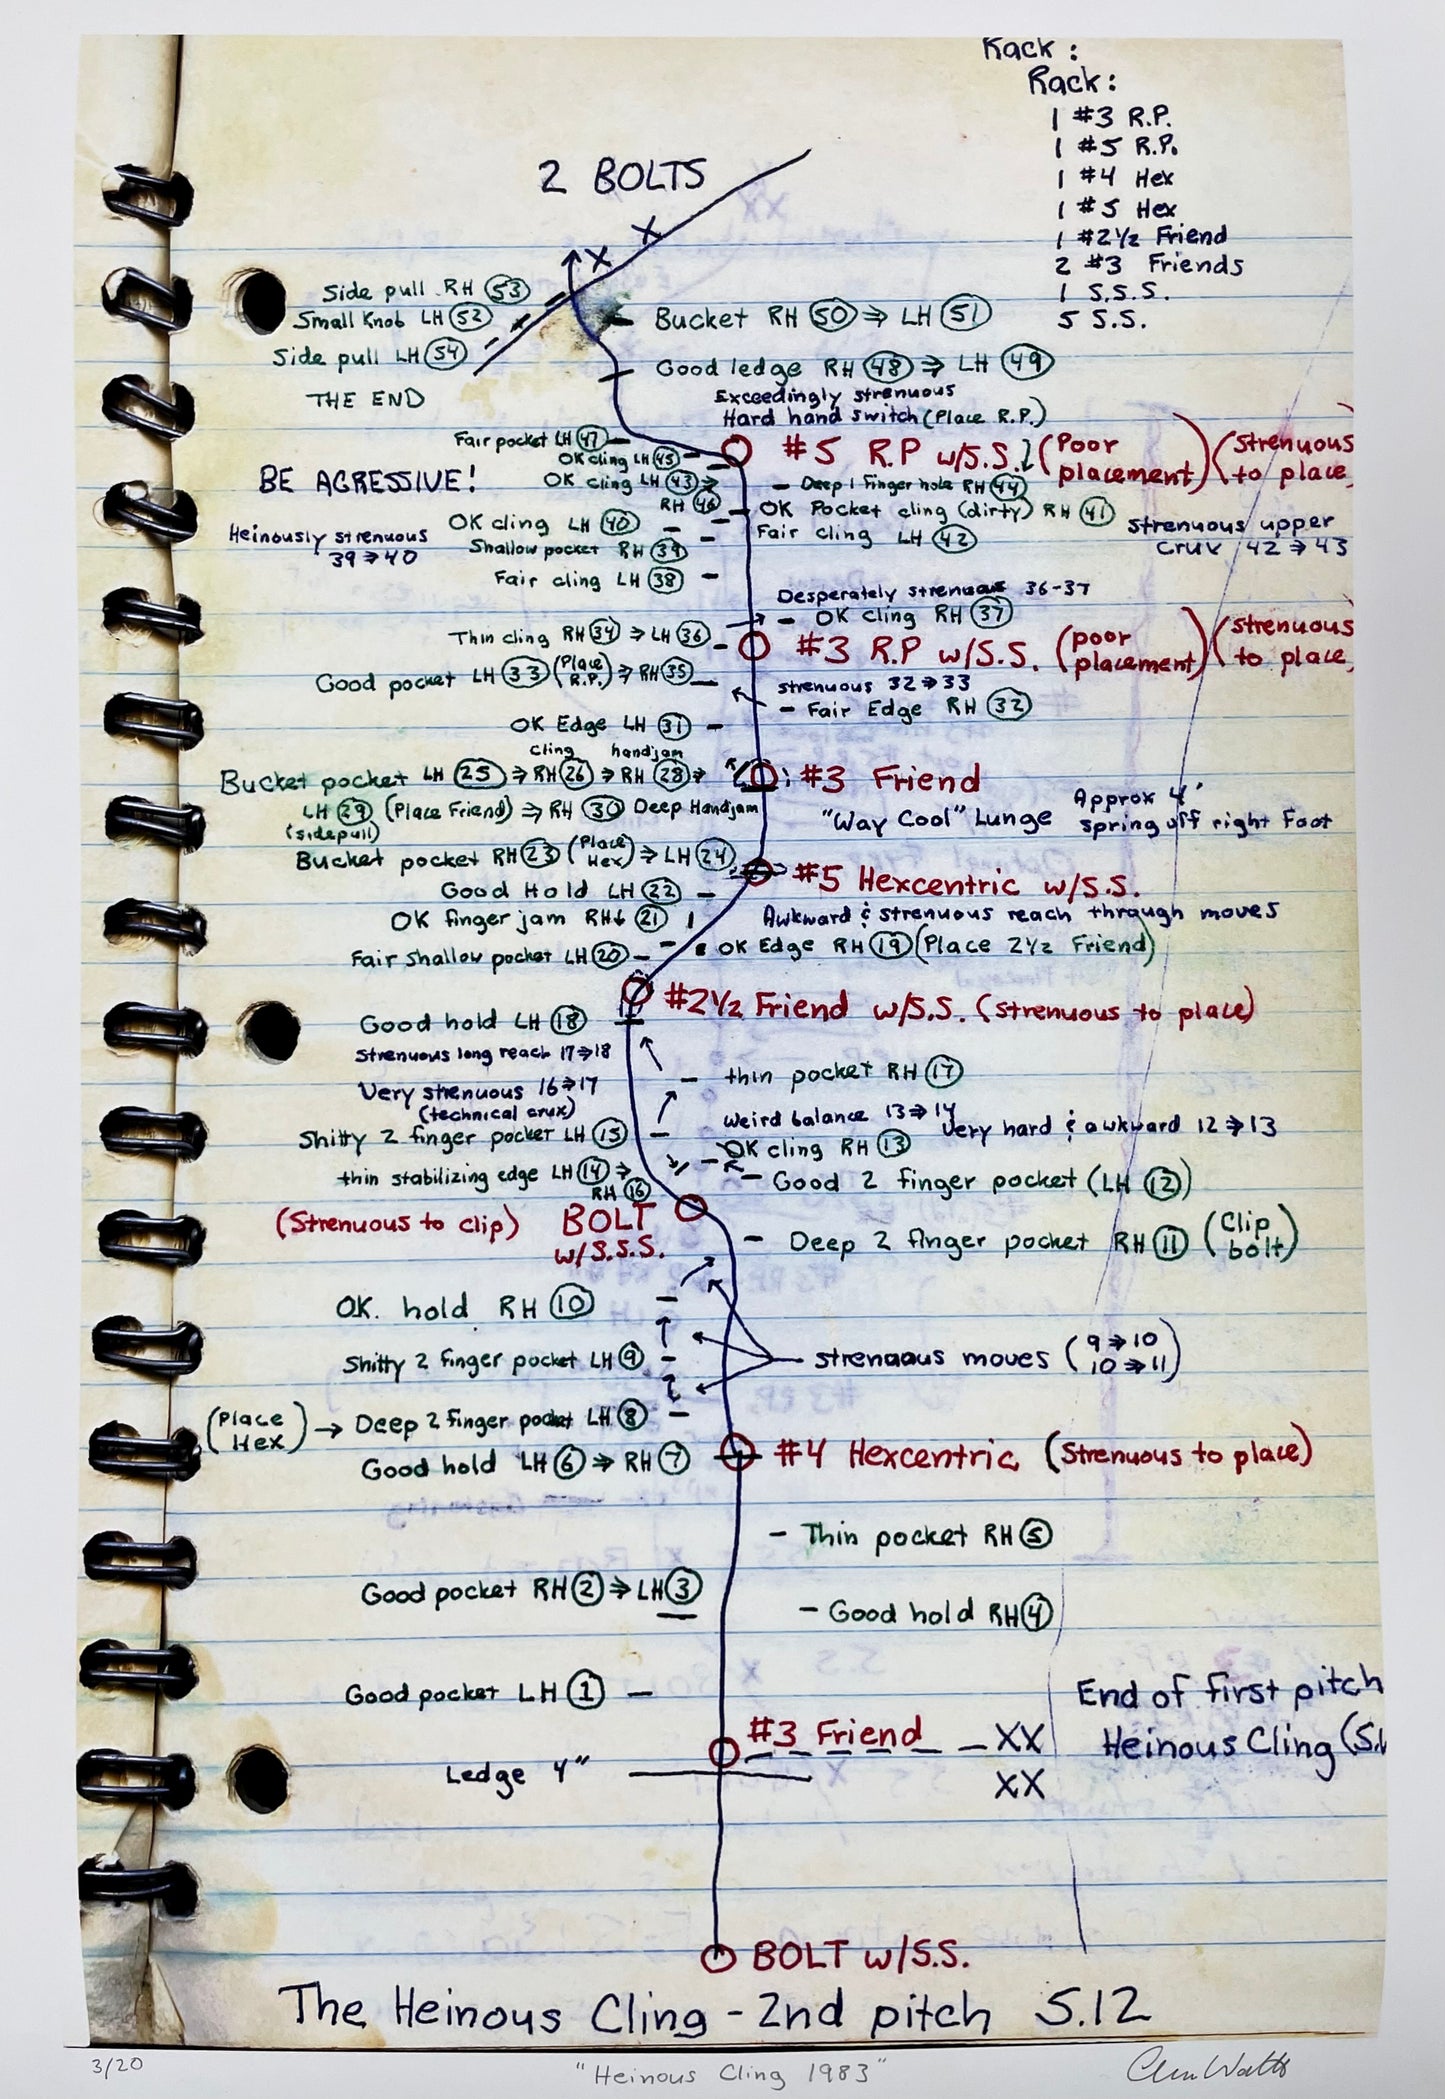 Rack :
Rack :
1 #3 R.P.
1 #5 R.P.
1 #4 Hex
1 #5 Hex
1 #2½ Friend
2 #3 Friends
1 S.S.S.
5 S.S.
2 BOLTS
X X
Side pull RH 53
Small Knob LH 52
Side pull LH 54
THE END
Bucket RH 50 ⇒ LH 51
Good ledge RH 48 ⇒ LH 49
Exceedingly strenuous
Hard hand switch (Place R.P.)
Fair pocket LH 47
OK cling LH 45
OK cling LH 43 ⇒
RH 46
BE AGRESSIVE!
#5 R.P w/S.S. (Poor placement) (strenuous to place)
Deep 1 finger hole RH 44
OK Pocket cling (dirty) RH 41
Fair cling LH 42
strenuous upper
crux 42 ⇒ 43
OK cling LH 40
Heinously strenuous
39 ⇒ 40
Shallow pocket RH 39
Fair cling LH 38
Desperately strenuous 36-37
OK cling RH 37
Thin cling RH 34 ⇒ LH 36
#3 R.P w/S.S. (poor placement) (strenuous to place)
Good pocket LH 33 (Place R.P.) ⇒ RH 35
strenuous 32 ⇒ 33
Fair Edge RH 32
OK Edge LH 31
cling handjam
Bucket pocket LH 25 ⇒ RH 26 ⇒ RH 28 ⇒
#3 Friend
LH 29 (Place Friend) ⇒ RH 30 Deep Handjam
(sidepull)
"Way Cool" Lunge
Approx 4'
spring off right Foot
Bucket pocket RH 23 (Place Hex) ⇒ LH 24
#5 Hexcentric w/S.S.
Good Hold LH 22
Awkward & strenuous reach through moves
OK finger jam RH↓ 21
OK Edge RH 19 (Place 2½ Friend)
Fair shallow pocket LH 20
#2½ Friend w/S.S. (strenuous to place)
Good hold LH 18
Strenuous long reach 17 ⇒ 18
thin pocket RH 17
Very strenuous 16 ⇒ 17
(technical crux)
Weird balance 13 ⇒ 14
Very hard & awkward 12 ⇒ 13
Shitty 2 finger pocket LH 15
OK cling RH 13
thin stabilizing edge LH 14 ⇒
RH 16
Good 2 finger pocket (LH 12)
(Strenuous to clip) BOLT
w/S.S.S.
Deep 2 finger pocket RH 11 (Clip bolt)
OK. hold RH 10
Shitty 2 finger pocket LH 9
strenuous moves (9 ⇒ 10
10 ⇒ 11)
(Place Hex) → Deep 2 finger pocket LH 8
Good hold LH 6 ⇒ RH 7
#4 Hexcentric (Strenuous to place)
Thin pocket RH 5
Good pocket RH 2 ⇒ LH 3
Good hold RH 4
Good pocket LH 1
#3 Friend
XX
XX
End of first pitch
Heinous Cling
Ledge 4"
BOLT w/S.S.
The Heinous Cling - 2nd pitch 5.12
3/20
"Heinous Cling 1983"